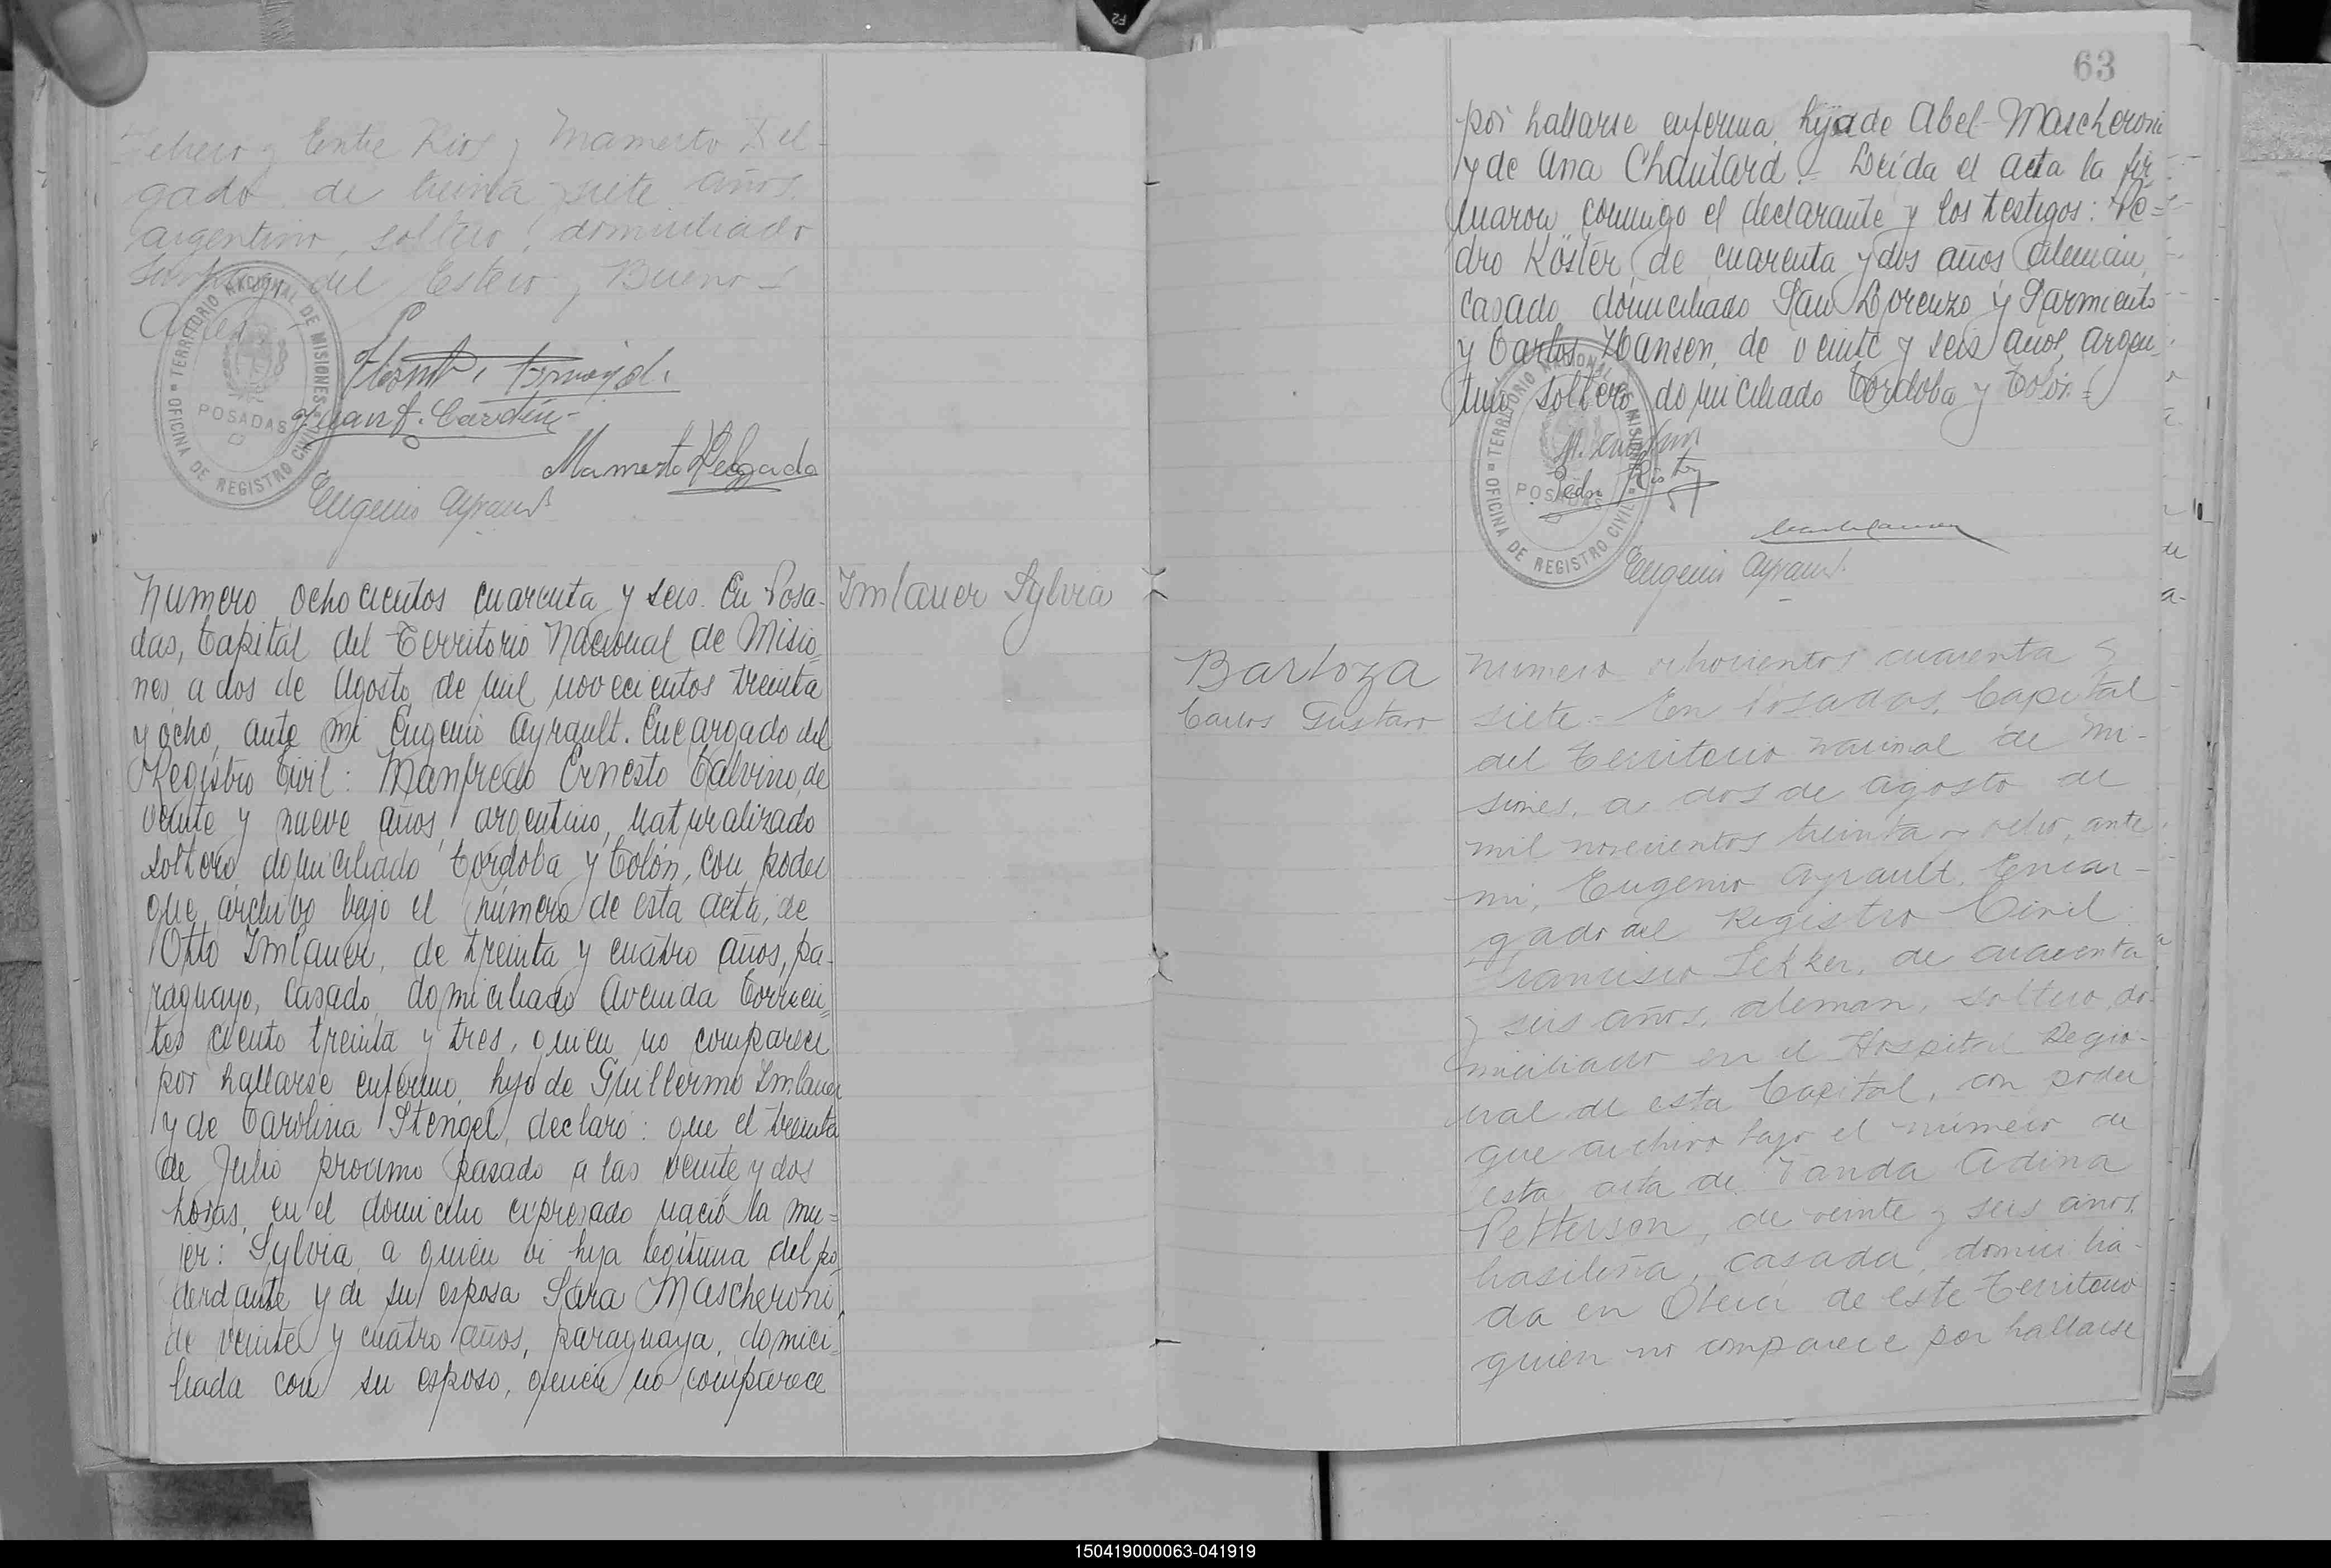 Febrero y Entre Rios y Mamerto Del-
gado de treinta y siete años,
argentino, soltero, domiciliado
Santiago del Estero y Buenos
Aires
TERRITORIO NACIONAL DE MISIONES
OFICINA DE REGISTRO CIVIL
POSADAS
Mamerto Delgado
Eugenio Ayrault
Numero ochocientos cuarenta y seis. En Posa-
das, Capital del Territorio Nacional de Misio-
nes, a dos de Agosto de mil novecientos treinta
y ocho, ante mi Eugenio Ayrault. Encargado del
Registro Civil: Manfredo Ernesto Calvino, de
veinte y nueve años, argentino, naturalizado
soltero, domiciliado Cordoba y Colón, con poder
que archivo bajo el número de esta acta, de
Otto Imlauer, de treinta y cuatro años, pa-
raguayo, casado, domiciliado Avenida Corrien-
tes ciento treinta y tres, quien no comparece
por hallarse enfermo, hijo de Guillermo Imlauer
y de Carolina Stengel, declaró: que el treinta
de Julio proximo pasado a las veinte y dos
horas, en el domicilio expresado nació la mu-
jer: Sylvia, a quien vi hija legitima del po-
derdante y de su esposa Sara Mascheroni,
de veinte y cuatro años, paraguaya, domici-
liada con su esposo, quien no comparece
Imlauer Sylvia
63
por hallarse enferma, hija de Abel Mascheroni
y de Ana Chautard.- Leída el acta la fir-
maron conmigo el declarante y los testigos: Pe-
dro Köster, de cuarenta y dos años, aleman,
casado domiciliado San Lorenzo y Sarmiento
y Carlos Hansen, de veinte y seis años, argen-
tino, soltero, domiciliado Cordoba y Colón.=
TERRITORIO NACIONAL DE MISIONES
OFICINA DE REGISTRO CIVIL
POSADAS
Eugenio Ayrault
Bartoza
Carlos Gustavo
Numero ochocientos cuarenta y
siete.- En Posadas, Capital
del Territorio Nacional de Mi-
siones, a dos de Agosto de
mil novecientos treinta y ocho, ante
mi, Eugenio Ayrault, Encar-
gado del Registro Civil:
Francisco Sekker, de cuarenta
y seis años, aleman, soltero, do-
miciliado en el Hospital Regio-
nal de esta Capital, con poder
que archivo bajo el número de
esta acta de Vanda Adina
Petterson, de veinte y seis años,
brasileña, casada, domicilia-
da en Oberá de este Territorio
quien no comparece por hallarse
150419000063-041919